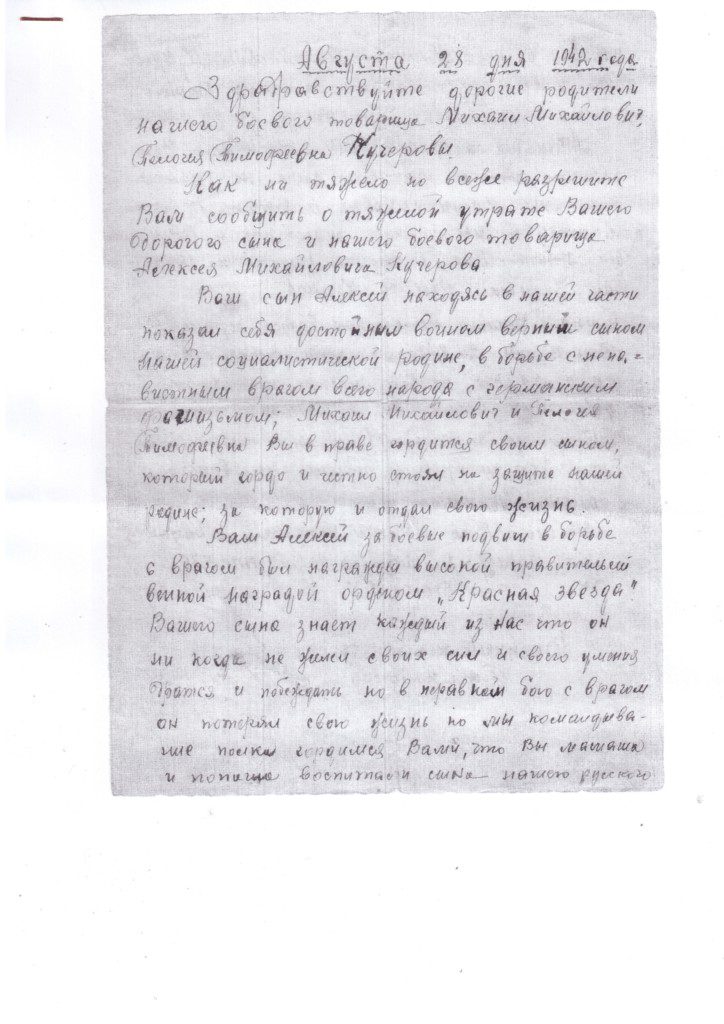 Августа 28 дня 1942 года
Здраправствуйте дорогие родители
нашего боевого товарища Михаил Михайлович,
Тимофеевна Кучеровы.
Как ни тяжело но всеже разришите
Вам сообщить о тяжелой утрате Вашего
дорогого сына и нашего боевого товарища
Алексея Михайловича Кучерова
Ваш сын Алексей находясь в нашей части
показал себя достойным воином верный сыном
нашей социалистической родине, в борьбе с нена-
вистным врагом всего народа с германским
фашизьмом; Михаил Михайлович и
Тимофеевна Вы в праве гордится своим сыном,
который гордо и честно стоял на защите нашей
родине; за которую и отдал свою жизнь.
Ваш Алексей за боевые подвиги в борьбе
с врагом был награжден высокой правительст
венной наградой орденом „Красная звезда"
Вашего сына знает каждый из нас что он
ни когда не жалел своих сил и своего умения
дратся и побеждать но в неравном бою с врагом
он потерял свою жизнь но мы командыва-
ние полка гордимся Вами, что Вы мамаша
и папаша воспитали сына нашего русского